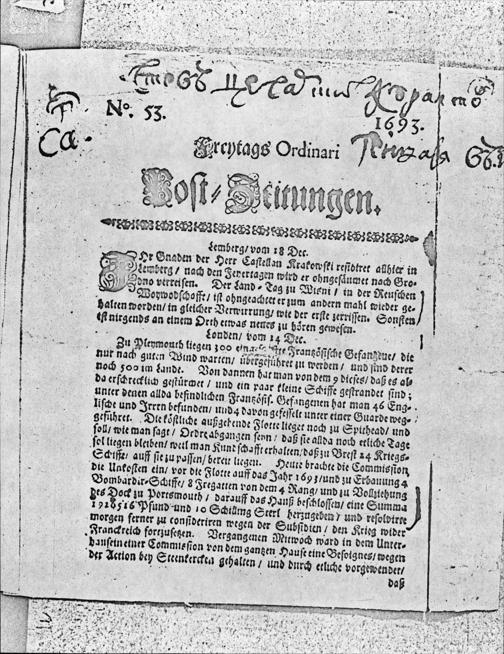 No. 53.
1693.
Freytags Ordinari
Post-Zeitungen.
Lemberg / vom 18 Dec.
Ihr Gnaden der Herr Castellan Krakowski residiret allhier in
Lemberg / nach den Feyertagen wird er ohngesäumet nach Gro-
dno verreisen. Der Land-Tag zu Wisni / in der Reuschen
Woywodschafft / ist ohngeachtet er zum andern mahl wieder ge-
halten worden / in gleicher Verwirrung / wie der erste zerrissen. Sonsten
ist nirgends an einem Orth etwas neues zu hören gewesen.
Londen / vom 14 Dec.
Zu Pleymouth liegen 300 Französische Gefangene / die
nur nach guten Wind warten / übergeführet zu werden / und sind derer
noch 500 im Lande. Von dannen hat man von dem 9 dieses / daß es al-
da erschrecklich gestürmet / und ein paar kleine Schiffe gestrandet sind;
unter denen allda befindlichen Französis. Gefangenen hat man 46 Eng-
lische und Irren befunden / und 4 davon gefesselt unter einer Guarde weg-
geführet. Die köstliche außgehende Flotte lieget noch zu Spithead / und
soll / wie man sagt / Ordre abgangen seyn / daß sie allda noch etliche Tage
sol liegen bleiben / weil man Kundschafft erhalten / daß zu Brest 24 Kriegs-
Schiffe / auff sie zu passen / bereit liegen. Heute brachte die Commission
die Unkosten ein / vor die Flotte auff das Jahr 1693 / und zu Erbauung 4
Bombardir-Schiffe / 8 Fregatten von dem 4 Rang / und zu Vollziehung
des Dock zu Portsmouth / darauff das Hauß beschlossen / eine Summa
1926516 Pfund und 10 Schilling Sterl herzugeben / und resolvirte
morgen ferner zu consideriren wegen der Subsidien / den Krieg wider
Franckreich fortzusetzen. Vergangenen Mitwoch ward in dem Unter-
hause in einer Commission von dem gantzen Hause eine Besoignes / wegen
der Action bey Steenkercken gehalten / und durch etliche vorgewendet /
daß